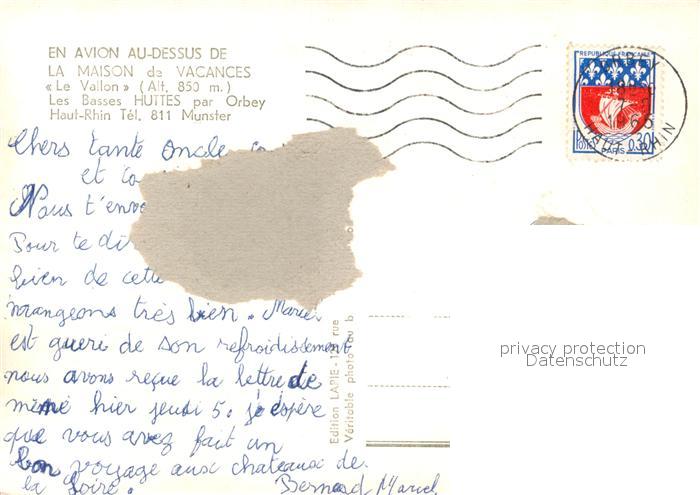 EN AVION AU-DESSUS DE
LA MAISON de VACANCES
« Le Vallon » (Alt. 850 m.)
Les Basses HUTTES par Orbey
Haut-Rhin Tél. 811 Munster
REPUBLIQUE FRANÇAISE
POSTES 0,30
PARIS
HAUT RHIN
Chers tante oncle
et
Nous t'envo
Pour te di
bien de cette
mangeons très bien. Marie
est gueri de son refroidissement
nous avons reçue la lettre de
mémé hier jeudi 5. j'espère
que vous avez fait un
bon voyage aux chateaux de
la Loire.
Bernard Marcel
Edition LAPIE - rue
Véritable photo au b
privacy protection
Datenschutz